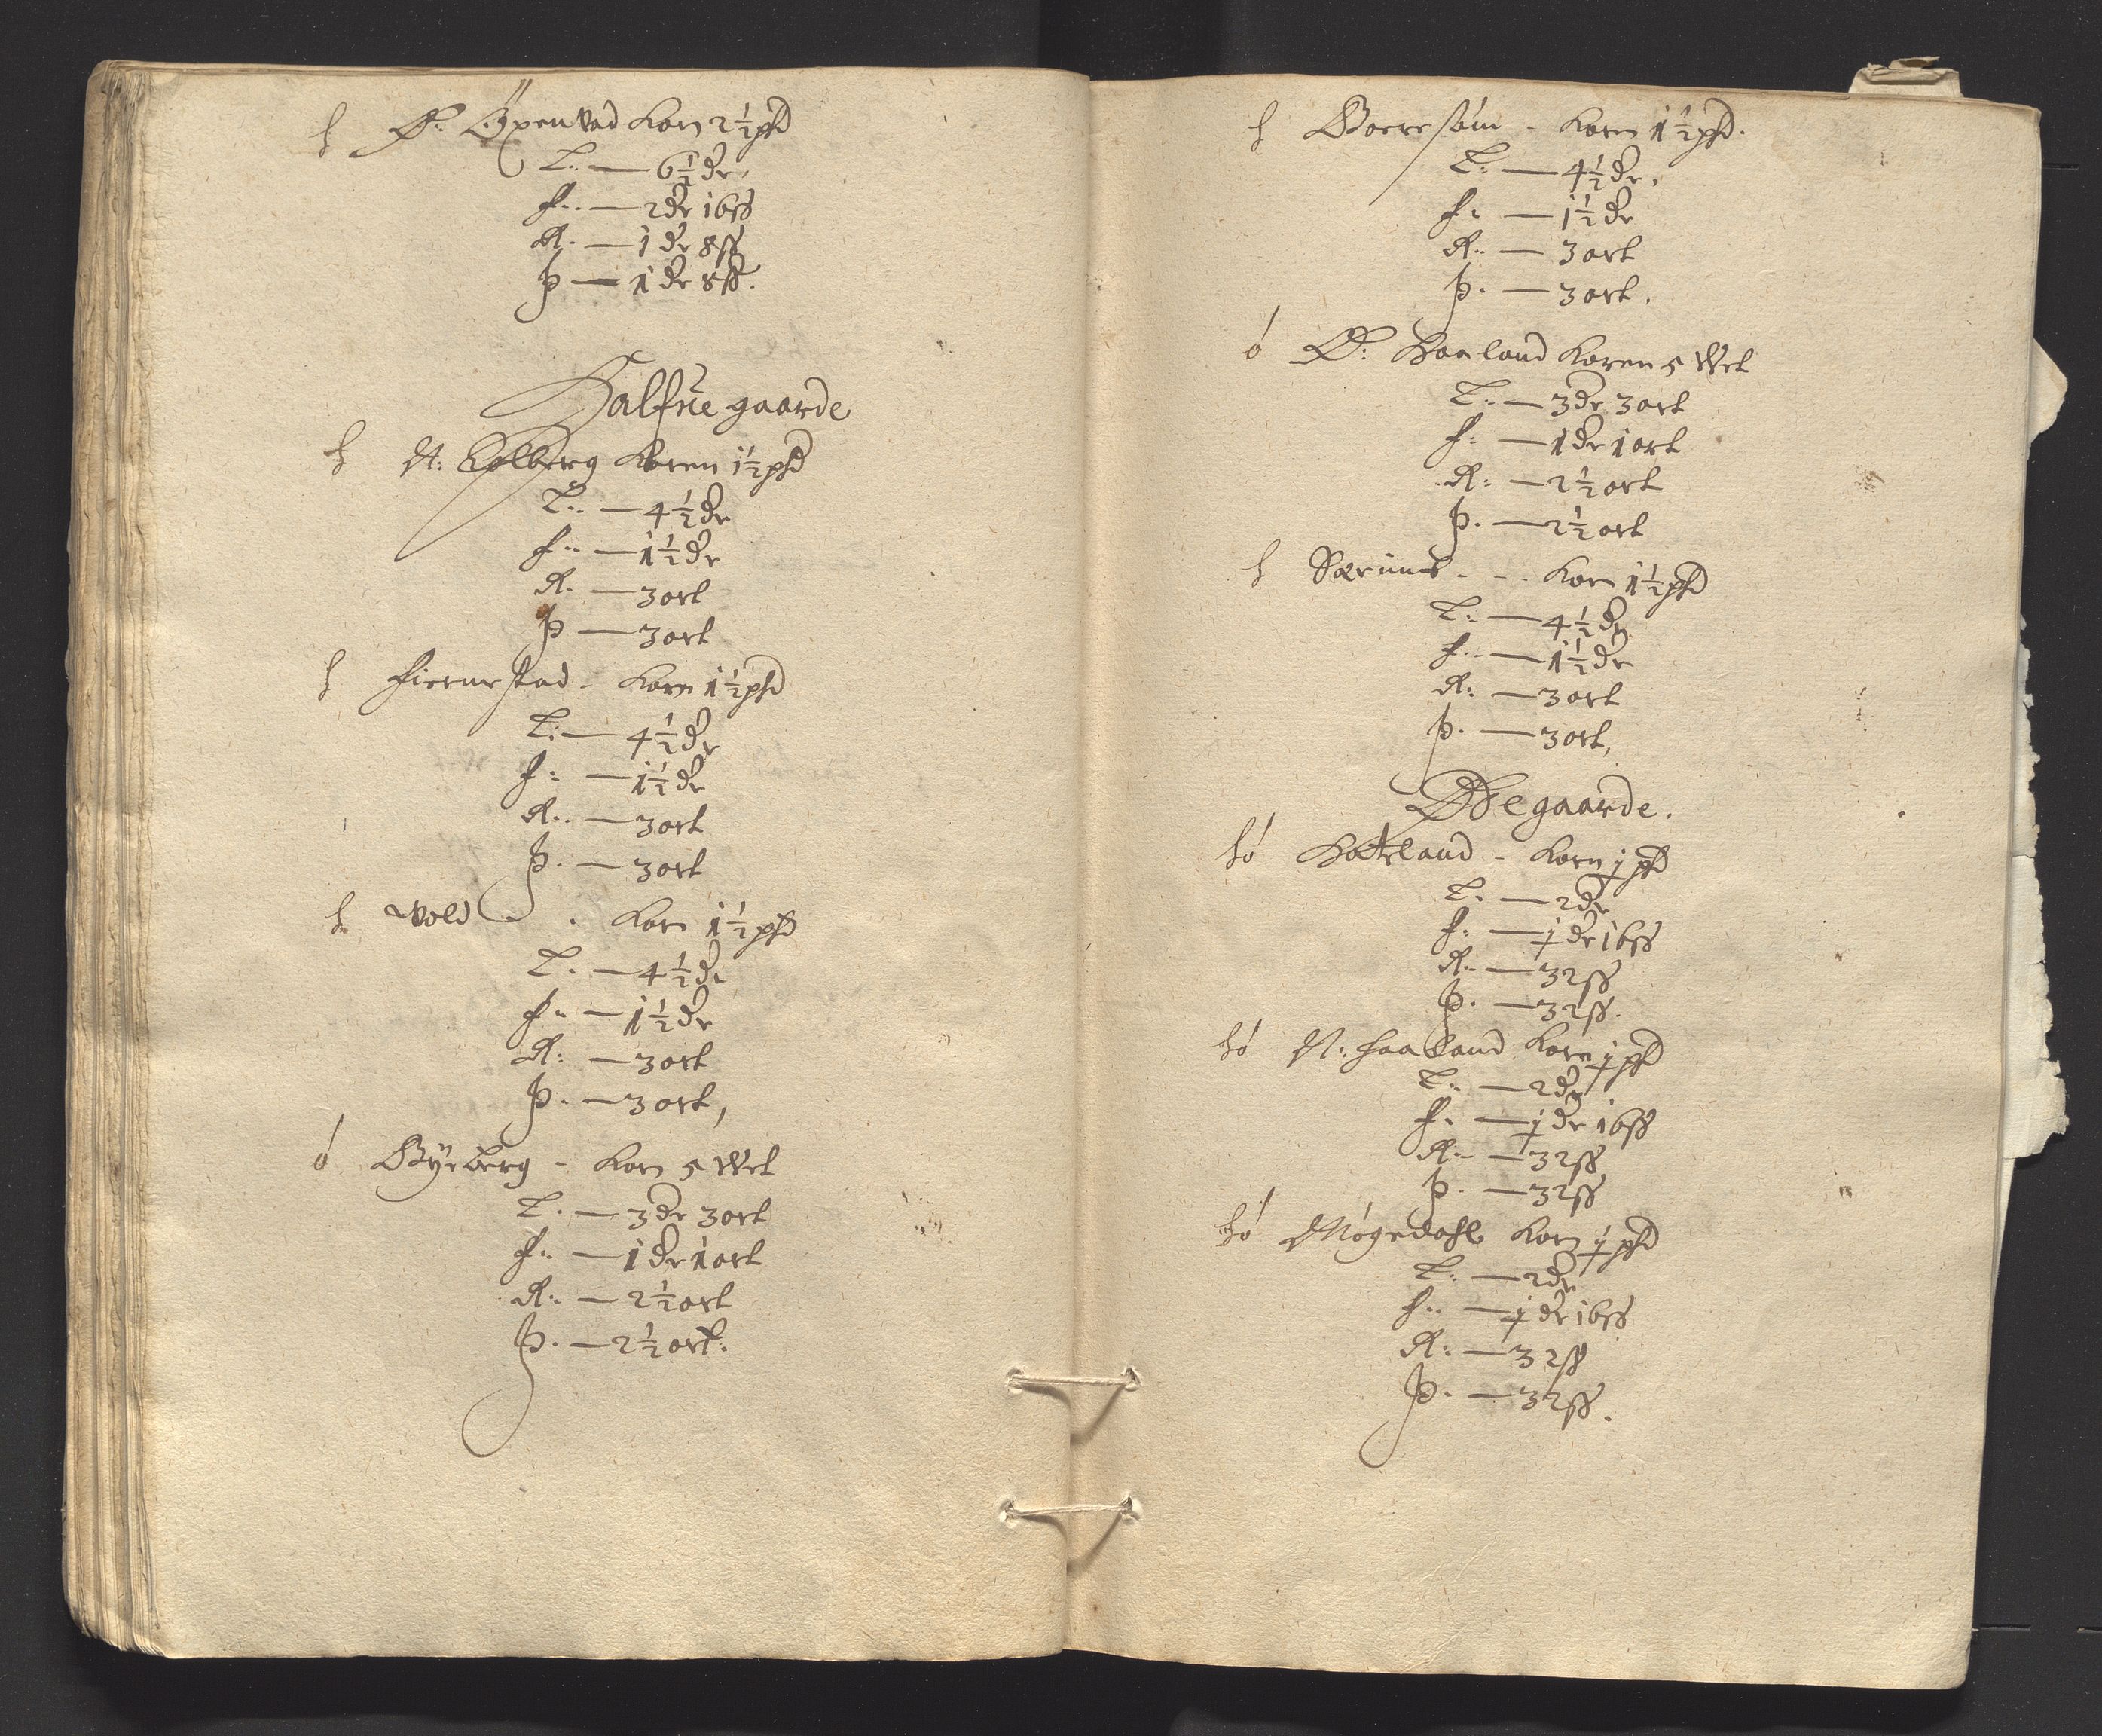 h Ø: Øxenvad Korn 2½ pd
T: — 6½ dr
f: — 2 dr 16 ß
R: — 1 dr 8 ß
Þ — 1 dr 8 ß.
Halfue gaarde
h N: Kolberg Koren 1½ pd
T: — 4½ dr
f: — 1½ dr
R: — 3 ort
Þ — 3 ort
h fiermestad - Korn 1½ pd
T: — 4½ dr
f: — 1½ dr
R: — 3 ort
Þ. — 3 ort
h Vold . Korn 1½ pd
T. — 4½ dr
f: — 1½ dr
R: — 3 ort
Þ. — 3 ort,
ó Byeberg - Korn 5 Vet
T. — 3 dr 3 ort
f: — 1 dr 1 ort
R: — 2½ ort
Þ. — 2½ ort.
h Boersóm - Korn 1½ pd.
T: — 4½ dr.
f: — 1½ dr
R: — 3 ort
Þ. — 3 ort.
ó Ø: Haaland Koren 5 Vet
T: — 3 dr 3 ort
f: — 1 dr 1 ort
R: — 2½ ort
Þ. — 2½ ort
h - - . Korn 1½ pd
T: — 4½ dr
f: — 1½ dr
R: — 3 ort
Þ. — 3 ort,
Øde gaarde.
hó Hatteland - Korn j pd
T. — 2 dr
f: — j dr 16 ß
R: — 32 ß
Þ. — 32 ß.
hó N: haaland Korn j pd
T: — 2 dr
f. — j dr 16 ß
R: — 32 ß
Þ. — 32 ß
hó Mógedahl Korn j pd
T: — 2 dr
f: — j dr 16 ß
R: — 32 ß
Þ. — 32 ß.